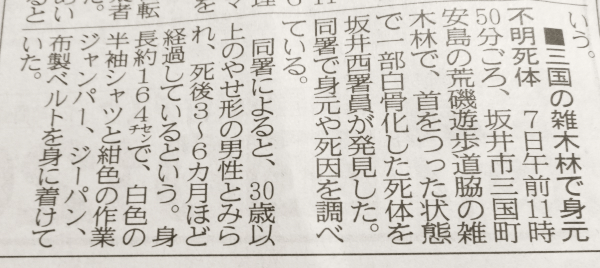 いう。
■三国の雑木林で身元
不明死体　7日午前11時
50分ごろ、坂井市三国町
安島の荒磯遊歩道脇の雑
木林で、首をつった状態
で一部白骨化した死体を
坂井西署員が発見した。
同署で身元や死因を調べ
ている。
　同署によると、30歳以
上のやせ形の男性とみら
れ、死後3〜6カ月ほど
経過しているという。身
長約164㌢で、白色の
半袖シャツと紺色の作業
ジャンパー、ジーパン、
布製ベルトを身に着けて
いた。